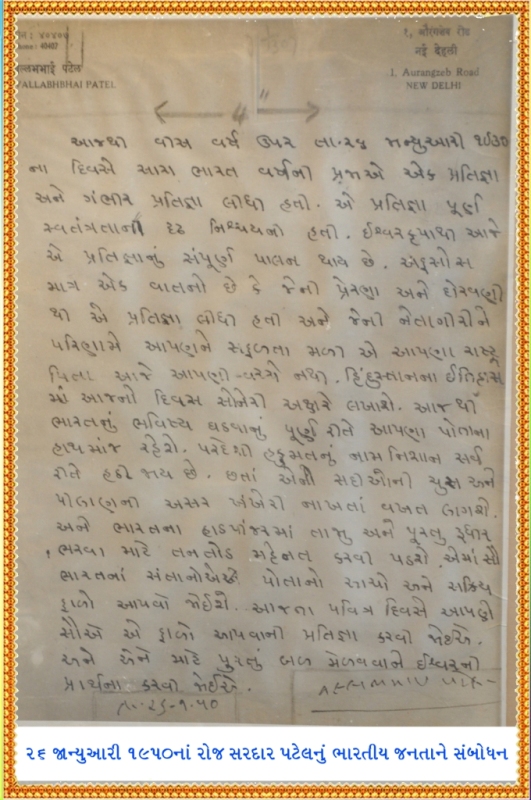 : ૪૦૪૦૭
hone: 40407
લ્લભભાઈ પટેલ
VALLABHBHAI PATEL
૧, औरंगजेब रोड
नई देहली
1, Aurangzeb Road
NEW DELHI
4"
આજથી વીસ વર્ષ ઉપર તા. ૨૬ જાન્યુઆરી ૧૯૩૦
ના દિવસે સારા ભારત વર્ષની પ્રજાએ એક પ્રતિજ્ઞા
અને ગંભીર પ્રતિજ્ઞા લીધી હતી. એ પ્રતિજ્ઞા પૂર્ણ
સ્વતંત્રતાની દૃઢ નિશ્ચયની હતી. ઈશ્વરકૃપાથી આજે
એ પ્રતિજ્ઞાનું સંપૂર્ણ પાલન થાય છે. અફસોસ
માત્ર એક વાતનો છે કે જેની પ્રેરણા અને દોરવણી
થી એ પ્રતિજ્ઞા લીધી હતી અને જેની નેતાગીરીને
પરિણામે આપણને સફળતા મળી એ આપણા રાષ્ટ્ર
પિતા આજે આપણી વચ્ચે નથી. હિંદુસ્તાનના ઈતિહાસ
માં આજનો દિવસ સોનેરી અક્ષરે લખાશે. આજથી
ભારતનું ભવિષ્ય ઘડવાનું પૂર્ણ રીતે આપણા પોતાના
હાથમાંજ રહેશે. પરદેશી હકુમતનું નામ નિશાન સર્વ
રીતે હઠી જાય છે. છતાં એની સદીઓની અને
પીલાણની અસર ખંખેરી નાખતાં વખત લાગશે.
અને ભારતના હાડપીંજરમાં તાજુ અને પૂરતુ રૂધીર
ભરવા માટે તનતોડ મહેનત કરવી પડશે. એમાં સૌ
ભારતનાં સંતાનોએ પોતાનો સાચો અને સક્રિય
ફાળો આપવો જોઈશે. આજના પવિત્ર દિવસે આપણે
સૌએ એ ફાળો આપવાની પ્રતિજ્ઞા કરવી જોઈએ.
અને એને માટે પુરતું બળ મેળવવાને ઈશ્વરની
પ્રાર્થના કરવી જોઈએ.
તા. ૨૬-૧-૫૦
૨૬ જાન્યુઆરી ૧૯૫૦નાં રોજ સરદાર પટેલનું ભારતીય જનતાને સંબોધન